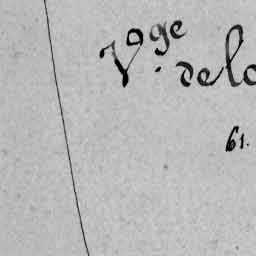 Vge. delo
61.